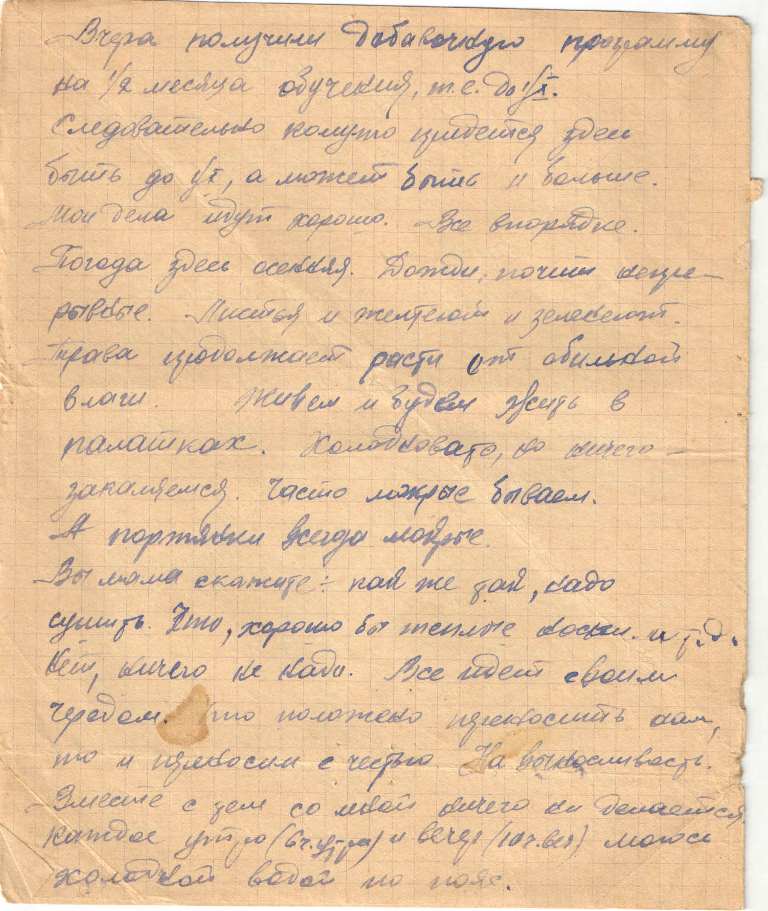 Вчера получили добавочную программу
на 1/2 месяца обучения, т.е. до 1/X.
Следовательно кому то придется здесь
быть до 1/X, а может быть и больше.
Мои дела идут хорошо. Все впорядке.
Погода здесь осенняя. Дожди, почти непре-
рывные. Листья и желтеют и зеленеют.
Трава продолжает расти от обильной
влаги. Живем и будем жить в
палатках. Холодновато, но ничего -
закаляемся. Часто мокрые бываем.
А портянки всегда мокрые.
Вы мама скажите: как же так, надо
сушить. Что, хорошо бы теплые носки. и т.д.
Нет, ничего не надо. Все идет своим
чередом. Что положено переносить нам,
то и переносим с честью. На выносливость.
Вместе с тем со мной ничего не делается.
Каждое утро (6 ч. утра) и вечер (10 ч. веч) моюсь
холодной водой по пояс.